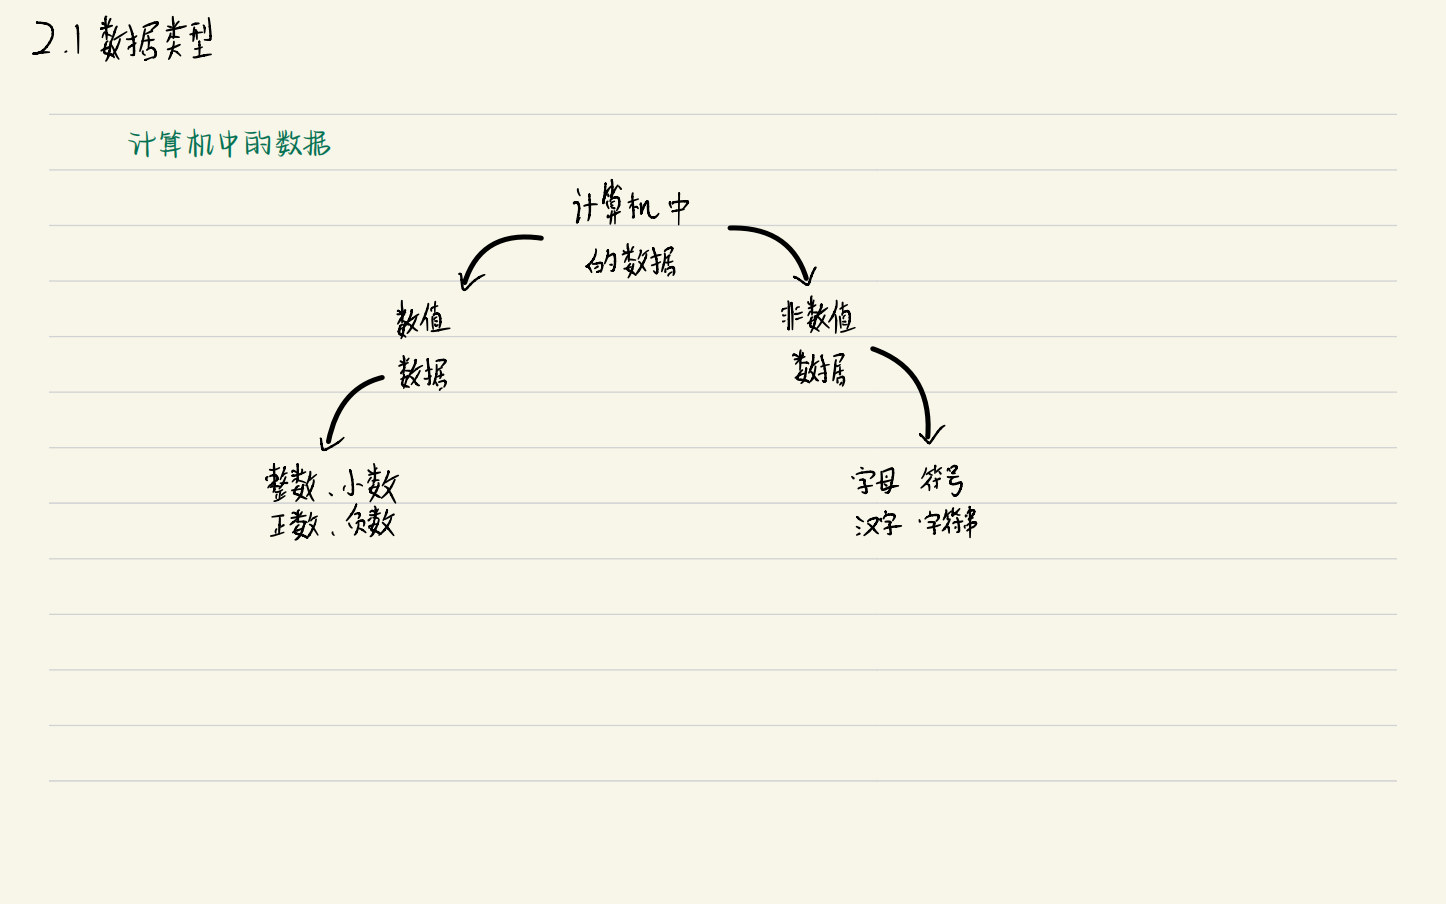 2.1 数据类型
计算机中的数据
计算机中
的数据
数值
数据
非数值
数据
整数、小数
正数、负数
字母 符号
汉字 字符串